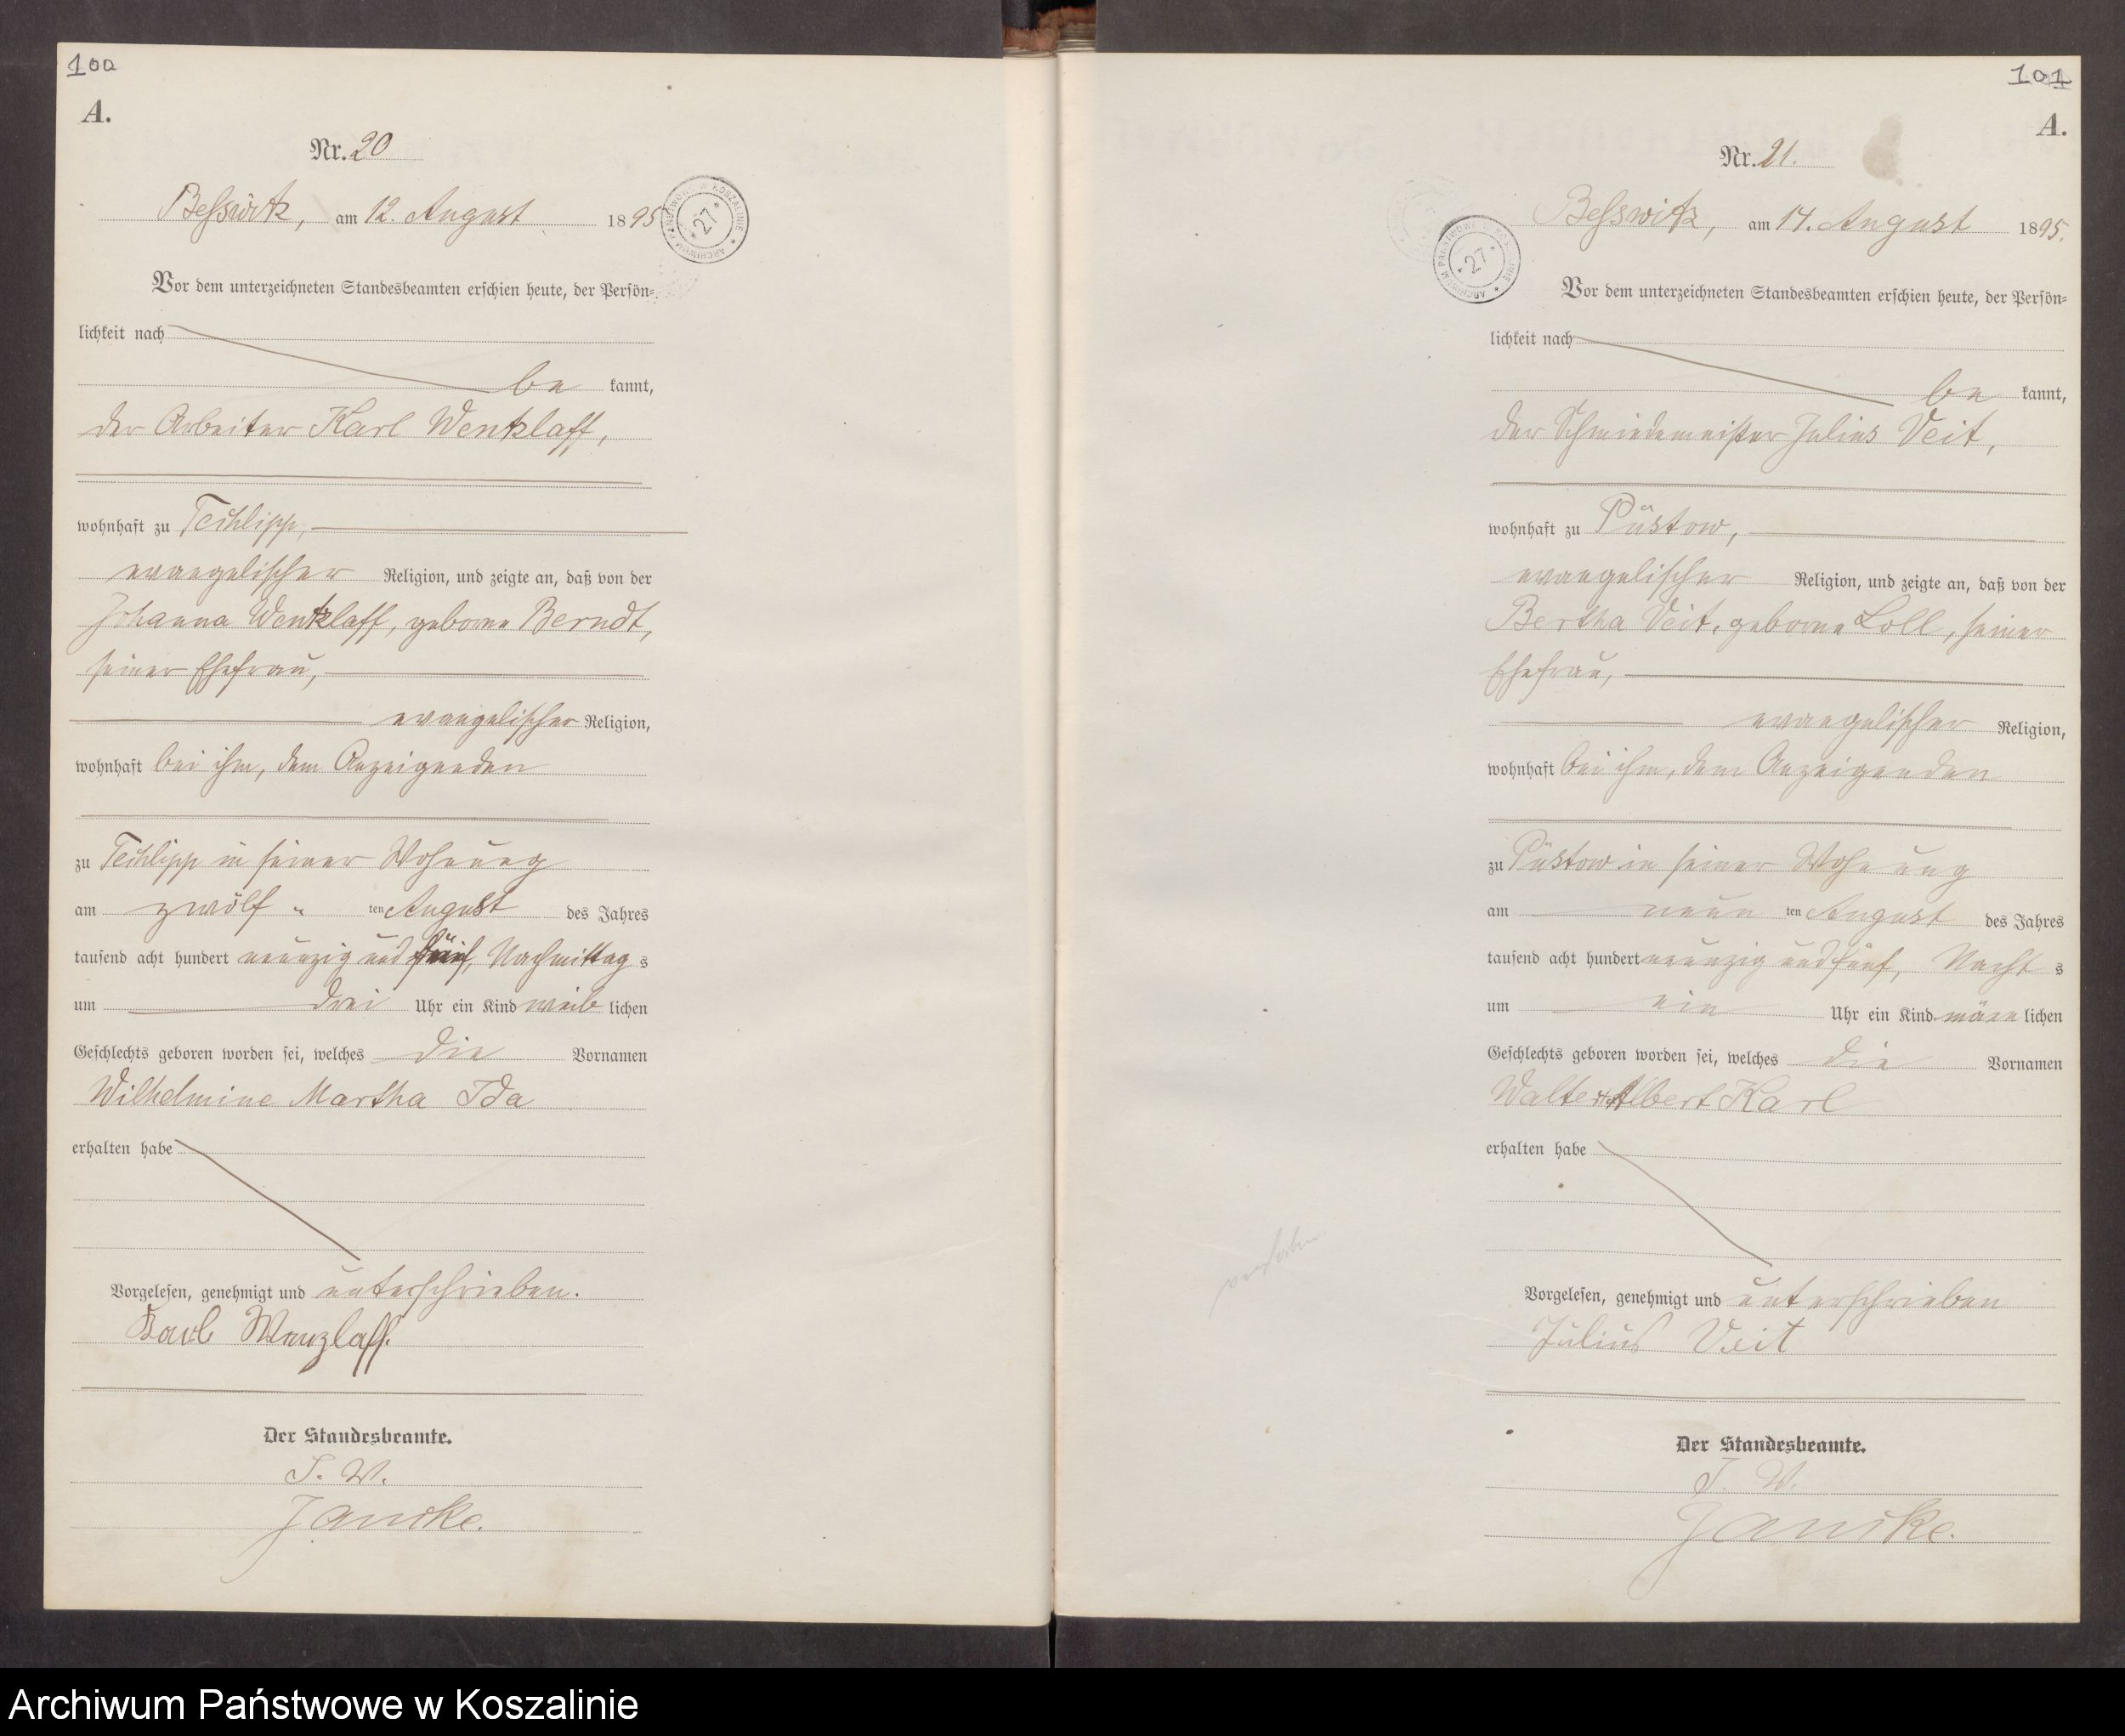 100
A.
Nr. 20
Besswitz, am 12. August 1895
ARCHIWUM PAŃSTWOWE W KOSZALINIE
* 27 *
Vor dem unterzeichneten Standesbeamten erschien heute, der Persön-
lichkeit nach
be kannt,
der Arbeiter Karl Wentzlaff,
wohnhaft zu Techlipp,
evangelischer Religion, und zeigte an, daß von der
Johanna Wentzlaff, geborne Berndt,
seiner Ehefrau,
evangelischer Religion,
wohnhaft bei ihm, dem Anzeigenden
zu Techlipp in seiner Wohnung
am zwölf ten August des Jahres
tausend acht hundert neunzig und fünf, Nachmittag s
um drei Uhr ein Kind weib lichen
Geschlechts geboren worden sei, welches die Vornamen
Wilhelmine Martha Ida
erhalten habe
Vorgelesen, genehmigt und unterschrieben.
Karl Wenzlaff.
Der Standesbeamte.
I. V.
Janicke.
101
A.
Nr. 21.
Besswitz, am 14. August 1895.
ARCHIWUM PAŃSTWOWE W KOSZALINIE
* 27 *
Vor dem unterzeichneten Standesbeamten erschien heute, der Persön-
lichkeit nach
be kannt,
der Schmiedemeister Julius Veit,
wohnhaft zu Püstow,
evangelischer Religion, und zeigte an, daß von der
Bertha Veit, geborne Loll, seiner
Ehefrau,
evangelischer Religion,
wohnhaft bei ihm, dem Anzeigenden
zu Püstow in seiner Wohnung
am neun ten August des Jahres
tausend acht hundert neunzig und fünf, Nacht s
um ein Uhr ein Kind männ lichen
Geschlechts geboren worden sei, welches die Vornamen
Walter Albert Karl
erhalten habe
Vorgelesen, genehmigt und unterschrieben
Julius Veit
Der Standesbeamte.
I. V.
Janicke.
Archiwum Państwowe w Koszalinie